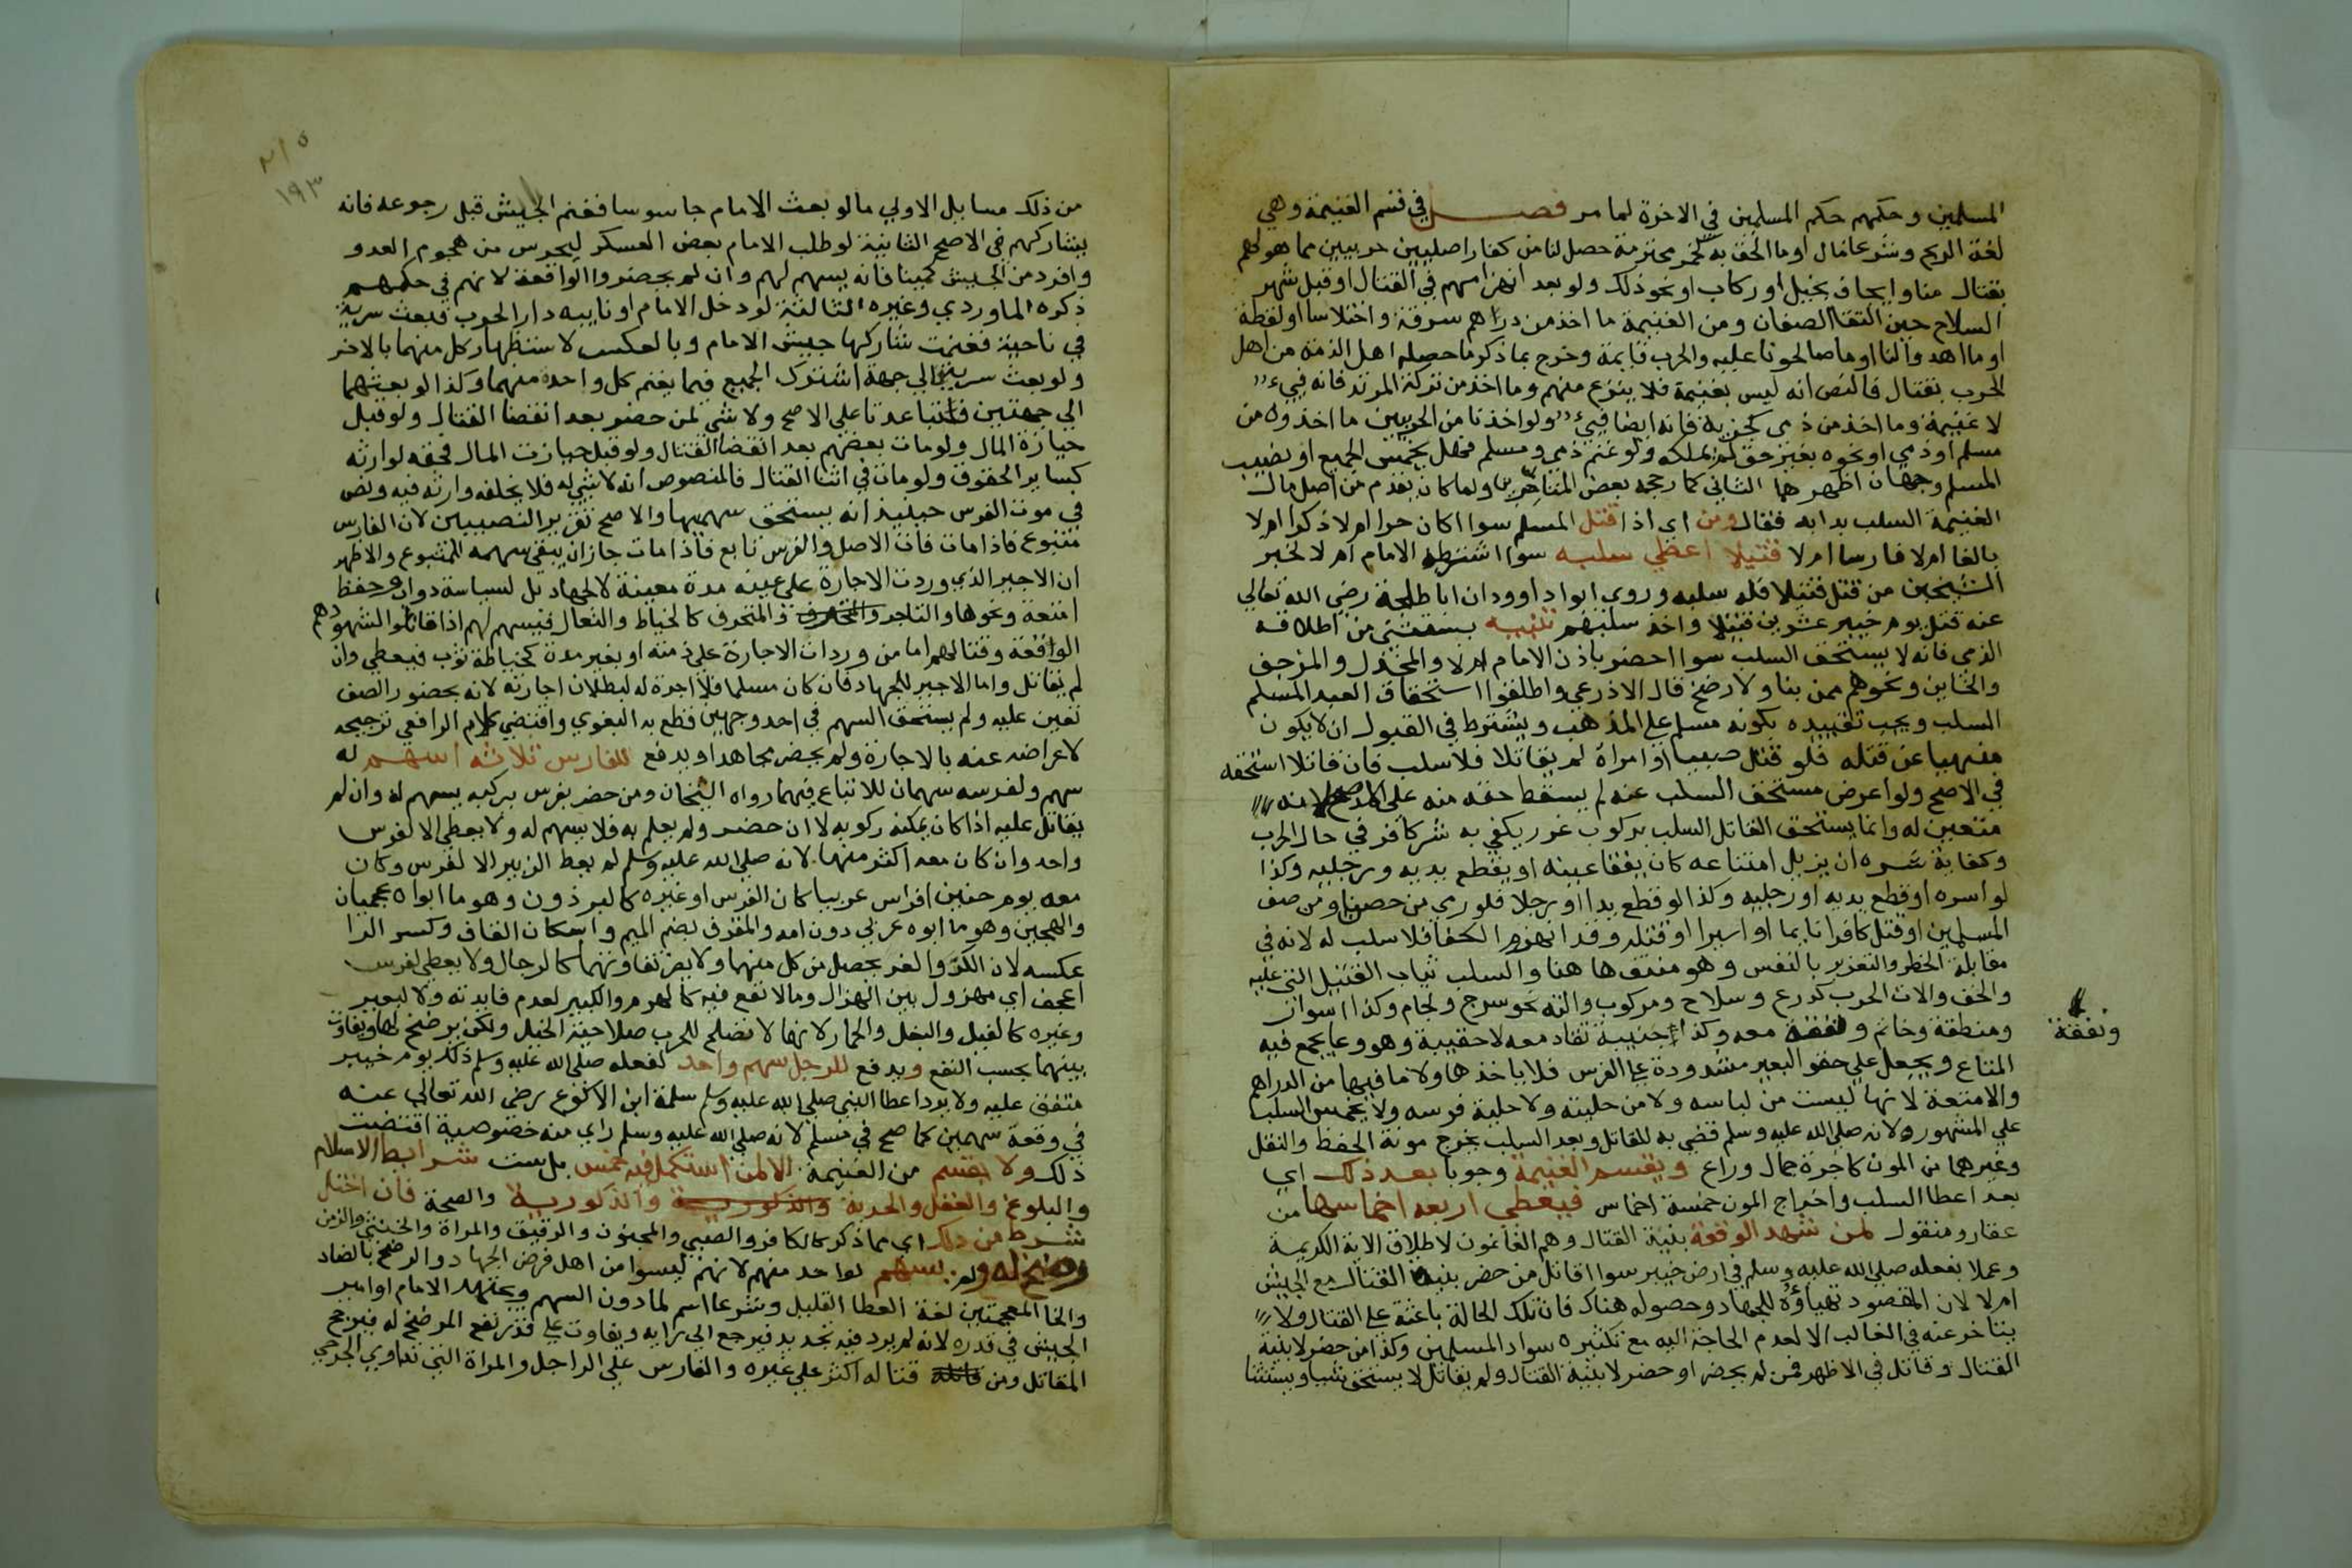 المسلمين وحكمهم حكم المسلمين في الاخرة لما مر فصل في قسم الغنيمة وهي
لغة الربح وشرعا مال او ما الحق به كخمر محترمة حصل لنا من كفار اصليين حربيين مما هو لهم
بقتال منا وايجاف بخيل او ركاب او نحو ذلك ولو بعد انهزامهم في القتال او قبل شهر
السلاح حين التقا الصفان ومن الغنيمة ما اخذ من دراهم سرقة واختلاسا او لقطة
او ما اهدوا لنا او ما صالحونا عليه والحرب قايمة وخرج بما ذكر ما حصله اهل الذمة من اهل
الحرب بقتال فالنص انه ليس بغنيمة فلا ينزع منهم وما اخذ من تركة المرتد فانه فيء
لا غنيمة وما اخذ من ذمي كجزية فانه ايضا فيء ولو اخذنا من الحربيين ما اخذوه من
مسلم او ذمي او نحوه بغير حق لم نملكه ولو غنم ذمي ومسلم فهل يخمس الجميع او نصيب
المسلم وجهان اظهرهما الثاني كما رجحه بعض المتاخرين ولما كان يقدم من اصل مال
الغنيمة السلب بدا به فقال ومن اي اذا قتل المسلم سوا اكان حرا ام لا ذكرا ام لا
بالغا ام لا فارسا ام لا قتيلا اعطي سلبه سوا اشترطه الامام ام لا لخبر
الشيخين من قتل قتيلا فله سلبه وروي ابو داوود ان ابا طلحة رضي الله تعالي
عنه قتل يوم خيبر عشرين قتيلا واخذ سلبهم تنبيه يستثني من اطلاقه
الذمي فانه لا يستحق السلب سوا احضر باذن الامام ام لا والمخذل والمرجف
والخاين ونحوهم ممن بنا ولا رضخ قال الاذرعي واطلقوا استحقاق العبد المسلم
السلب ويجب تقييده بكونه مسلم علي المذهب ويشترط في القبول ان لا يكون
منهيا عن قتله فلو قتل صبيا او امراة لم يقاتلا فلا سلب فان قاتلا استحقه
في الاصح ولو اعرض مستحق السلب عنه لم يسقط حقه منه علي الاصح لانه
متعين له وانما يستحق القاتل السلب بركوب غرر يكفي به شر كافر في حال الحرب
وكفاية شره ان يزيل امتناعه كان يفقا عينه او يقطع يديه ورجليه وكذا
لو اسره او قطع يديه او رجليه وكذا لو قطع يدا او رجلا فلو رمي من حصن او من صف
المسلمين او قتل كافرا نايما او اسيرا او قتله وقد انهزم الكفا فلا سلب له لانه في
مقابلة الخطر والتغرير بالنفس وهو منتف ها هنا والسلب ثياب القتيل التي عليه
والخف والات الحرب كدرع وسلاح ومركوب والته نحو سرج ولجام وكذا اسوار
ومنطقة وخاتم ونفقة معه وكذا جنيبة تقاد معه لا حقيبة وهو وعا يجمع فيه
ونفقة
المتاع ويجعل علي حقو البعير مشدودة علي الفرس فلا ياخذها ولا ما فيها من الدراهم
والامتعة لانها ليست من لباسه ولا من حليته ولا حلية فرسه ولا يخمس السلب
علي المشهور ولانه صلي الله عليه وسلم قضي به للقاتل وبعد السلب يخرج مونة الحفظ والنقل
وغيرهما من المون كاجرة جمال وراع ويقسم الغنيمة وجوبا بعد ذلك اي
بعد اعطا السلب واخراج المون خمسة اخماس فيعطي اربعة اخماسها من
عقار ومنقول لمن شهد الوقعة بنية القتال وهم الغانمون لاطلاق الاية الكريمة
وعملا بفعله صلي الله عليه وسلم في ارض خيبر سوا اقاتل من حضر بنية القتال مع الجيش
ام لا لان المقصود تهياؤه للجهاد وحصوله هناك فان تلك الحالة باعثة علي القتال ولا
يتاخر عنه في الغالب الا لعدم الحاجة اليه مع تكثيره سواد المسلمين وكذا من حضر لا بنية
القتال وقاتل في الاظهر فمن لم يحضر او حضر لا بنية القتال ولم يقاتل لا يستحق شيا ويستثنا
٢١٥
١٩٣
من ذلك مسايل الاولي ما لو بعث الامام جاسوسا فغنم الجيش قبل رجوعه فانه
يشاركهم في الاصح الثانية لو طلب الامام بعض العسكر ليحرس من هجوم العدو
وافرد من الجيش كمينا فانه يسهم لهم وان لم يحضروا الواقعة لانهم في حكمهم
ذكره الماوردي وغيره الثالثة لو دخل الامام او نايبه دار الحرب فبعث سرية
في ناحية فغنمت شاركها جيش الامام وبالعكس لاستظهار كل منهما بالاخر
ولو بعث سريتين الي جهة اشترك الجميع فيما يغنم كل واحدة منهما وكذا لو بعثهما
الي جهتين وتباعدتا علي الاصح ولا شي لمن حضر بعد انقضا القتال ولو قبل
حيازة المال ولو مات بعضهم بعد انقضا القتال ولو قبل حيازت المال فحقه لوارثه
كساير الحقوق ولو مات في اثنا القتال فالمنصوص انه لا شي له فلا يخلفه وارثه فيه ونص
في موت الفرس حينيذ انه يستحق سهميها والاصح تقرير النصيبين لان الفارس
متبوع فاذا مات فات الاصل والفرس تابع فاذا مات جاز ان يبقي سهمه للمتبوع والاظهر
ان الاجير الذي وردت الاجارة علي عينه مدة معينة لا لجهاد بل لسياسة دواب وحفظ
امتعة ونحوها والتاجر والمحترف كالخياط والبقال فيسهم لهم اذا قاتلوا لشهودهم
الواقعة وقتالهم اما من وردات الاجارة علي ذمته او بغير مدة كخياطة ثوب فيعطي وان
لم يقاتل واما الاجير للجهاد فان كان مسلما فلا اجرة له لبطلان اجارته لانه بحضور الصف
تعين عليه ولم يستحق السهم في احد وجهين قطع به البغوي واقتضي كلام الرافعي ترجيحه
لاعراضه عنه بالاجارة ولم يحضر مجاهدا ويدفع للفارس ثلاثة اسهم له
سهم ولفرسه سهمان للاتباع فيهما رواه الشيخان ومن حضر بفرس يركبه يسهم له وان لم
يقاتل عليه اذا كان يمكنه ركوبه لا ان حضر ولم يعلم به فلا يسهم له ولا يعطي الا لفرس
واحد وان كان معه اكثر منها لانه صلي الله عليه وسلم لم يعط الزبير الا لفرس وكان
معه يوم حنين افراس عربيا كان الفرس او غيره كالبرذون وهو ما ابواه عجميان
والهجين وهو ما ابوه عربي دون امه والمقرف بضم الميم واسكان القاف وكسر الرا
عكسه لان الكر والفر يحصل من كل منهما ولا يضر تفاوتهما كالرجال ولا يعطي لفرس
اعجف اي مهزول بين الهزال وما لا نفع فيه كالهرم والكبير لعدم فايدته ولا لبعير
وغيره كالفيل والبغل والحمار لانها لا تصلح للحرب صلاحية الخيل ولكن يرضخ لها ويفاوت
بينهما بحسب النفع ويدفع للرجل سهم واحد لفعله صلي الله عليه وسلم ذلك يوم خيبر
متفق عليه ولا يرد اعطا النبي صلي الله عليه وسلم سلمة ابن الاكوع رضي الله تعالي عنه
في وقعة سهمين كما صح في مسلم لانه صلي الله عليه وسلم راي منه خصوصية اقتضت
ذلك ولا يقسم من الغنيمة الا لمن استكمل فيه خمس بل ست شرايط الاسلام
والبلوغ والعقل والحرية والذكورية والذكورية والصحة فان اختل
شرط من ذلك اي مما ذكر كالكافر والصبي والمجنون والرقيق والمراة والخنثي والزمن
رضخ له ولم يسهم لواحد منهم لانهم ليسوا من اهل فرض الجهاد والرضخ بالضاد
والخا المعجمتين لغة العطا القليل وشرعا اسم لما دون السهم ويجتهد الامام او امير
الجيش في قدره لانه لم يرد فيه تحديد فيرجع الي رايه ويفاوت علي قدر نفع المرضخ له فيرجح
المقاتل ومن قاتله قتاله اكثر علي غيره والفارس علي الراجل والمراة التي تداوي الجرحي